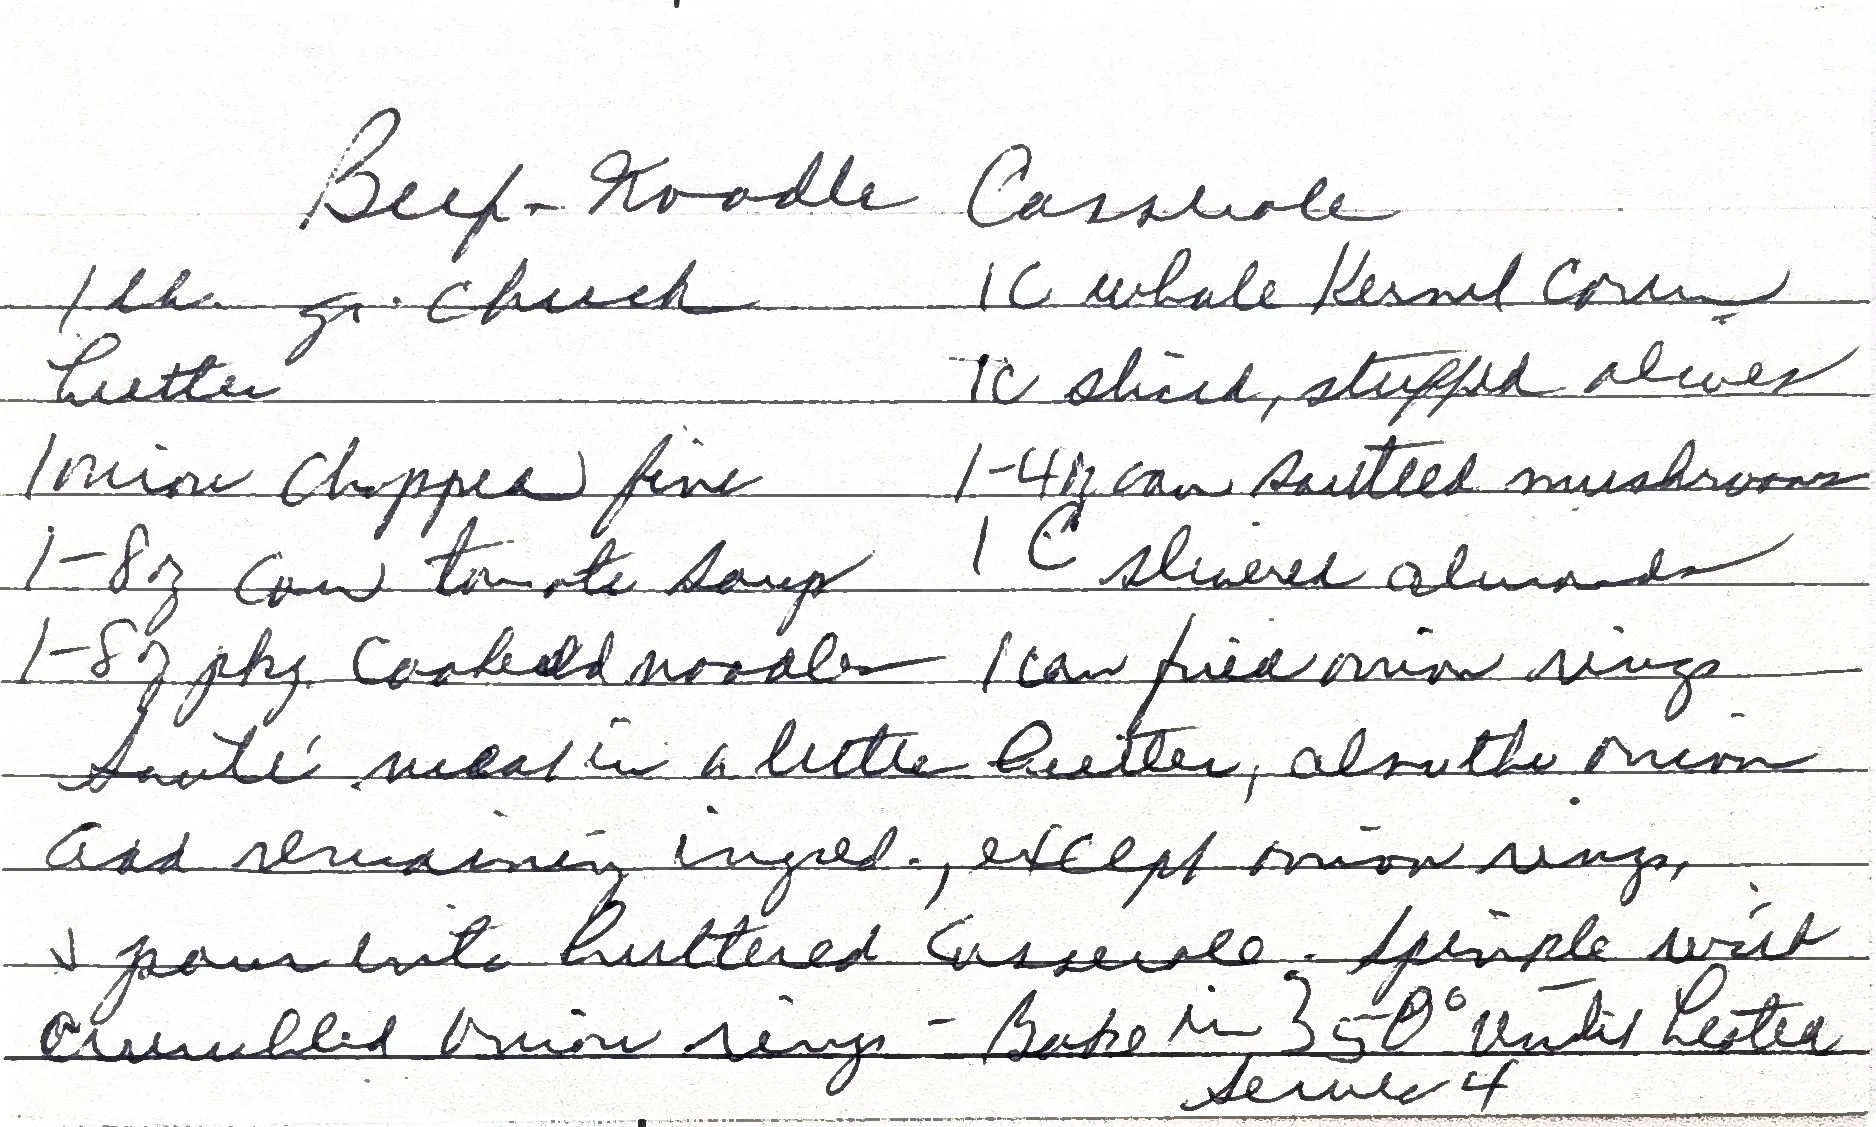 Beef-Noodle Casserole
1 lb. gr. chuck
butter
1 onion chopped fine
1-8 oz can tomato soup
1-8 oz pkg. cooked noodles
1 C whole Kernel corn
1 C sliced, stuffed olives
1-4 oz can sautteed mushrooms
1 C slivered almonds
1 can fried onion rings
Sauté meat in a little butter, also the onion
add remaining ingred., except onion rings,
& pour into buttered casserole. Sprinkle with
crumbled onion rings - Bake in 350° until heated
serves 4